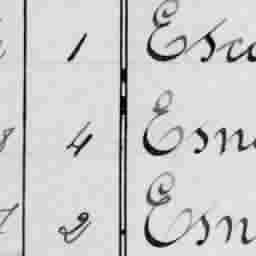 1 Esc
8 4 Esn
2 Esn